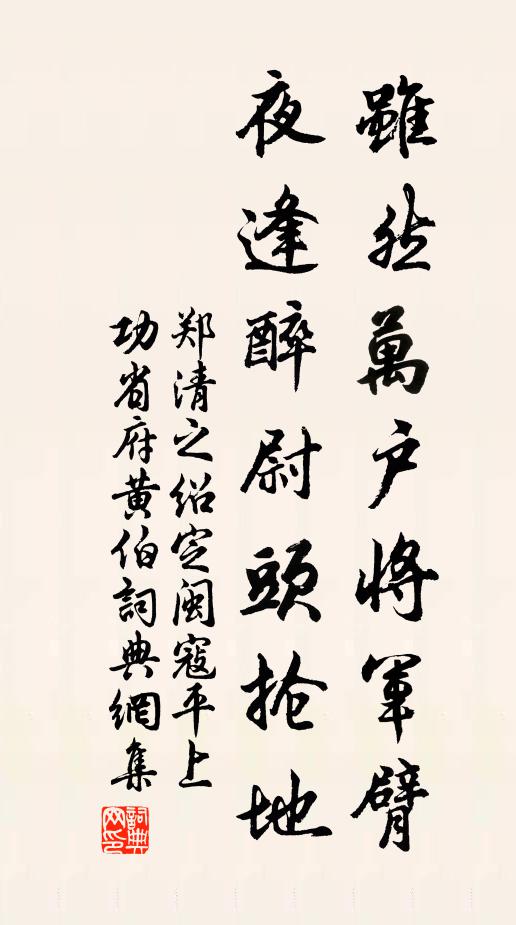 雖然萬户將軍臂
夜逢醉尉頭搶地
郑清之绍定闽寇平上
功省府黄伯詞典網集
詞典
网印